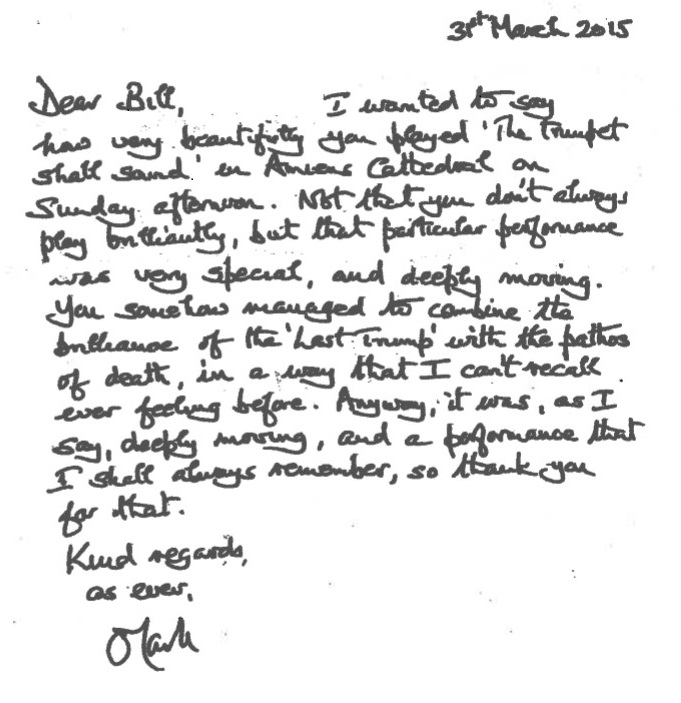 31st March 2015
Dear Bill, I wanted to say
how very beautifully you played 'The Trumpet
shall sound' in Amiens Cathedral on
Sunday afternoon. Not that you don't always
play brilliantly, but that particular performance
was very special, and deeply moving.
You somehow managed to combine the
brilliance of the 'Last Trump' with the pathos
of death, in a way that I can't recall
ever feeling before. Anyway, it was, as I
say, deeply moving, and a performance that
I shall always remember, so thank you
for that.
Kind regards,
as ever,
Mark